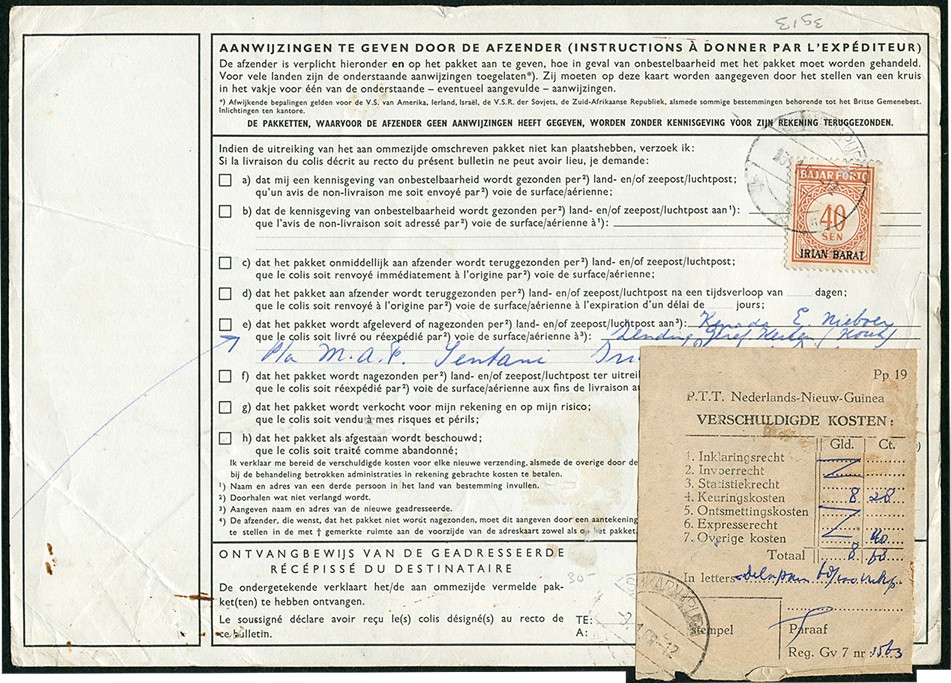 3913
AANWIJZINGEN TE GEVEN DOOR DE AFZENDER (INSTRUCTIONS À DONNER PAR L'EXPÉDITEUR)
De afzender is verplicht hieronder en op het pakket aan te geven, hoe in geval van onbestelbaarheid met het pakket moet worden gehandeld.
Voor vele landen zijn de onderstaande aanwijzingen toegelaten*). Zij moeten op deze kaart worden aangegeven door het stellen van een kruis
in het vakje voor één van de onderstaande – eventueel aangevulde – aanwijzingen.
*) Afwijkende bepalingen gelden voor de V.S. van Amerika, Ierland, Israël, de V.S.R. der Sovjets, de Zuid-Afrikaanse Republiek, alsmede sommige bestemmingen behorende tot het Britse Gemenebest.
Inlichtingen ten kantore.
DE PAKKETTEN, WAARVOOR DE AFZENDER GEEN AANWIJZINGEN HEEFT GEGEVEN, WORDEN ZONDER KENNISGEVING VOOR ZIJN REKENING TERUGGEZONDEN.
Indien de uitreiking van het aan ommezijde omschreven pakket niet kan plaatshebben, verzoek ik:
Si la livraison du colis décrit au recto du présent bulletin ne peut avoir lieu, je demande:
a) dat mij een kennisgeving van onbestelbaarheid wordt gezonden per²) land- en/of zeepost/luchtpost;
qu'un avis de non-livraison me soit envoyé par²) voie de surface/aérienne;
b) dat de kennisgeving van onbestelbaarheid wordt gezonden per²) land- en/of zeepost/luchtpost aan¹):
que l'avis de non-livraison soit adressé par²) voie de surface/aérienne à¹):
BAJAR PORTO
40
SEN
IRIAN BARAT
c) dat het pakket onmiddellijk aan afzender wordt teruggezonden per²) land- en/of zeepost/luchtpost;
que le colis soit renvoyé immédiatement à l'origine par²) voie de surface/aérienne;
d) dat het pakket aan afzender wordt teruggezonden per²) land- en/of zeepost/luchtpost na een tijdsverloop van dagen;
que le colis soit renvoyé à l'origine par²) voie de surface/aérienne à l'expiration d'un délai de jours;
e) dat het pakket wordt afgeleverd of nagezonden per²) land- en/of zeepost/luchtpost aan³): E. Nieboer
que le colis soit livré ou réexpédié par²) voie de surface/aérienne à³): Zending
P/a M.A.F. Sentani
f) dat het pakket wordt nagezonden per²) land- en/of zeepost/luchtpost ter
que le colis soit réexpédié par²) voie de surface/aérienne aux fins de livraison
g) dat het pakket wordt verkocht voor mijn rekening en op mijn risico;
que le colis soit vendu à mes risques et périls;
h) dat het pakket als afgestaan wordt beschouwd;
que le colis soit traité comme abandonné;
Ik verklaar me bereid de verschuldigde kosten voor elke nieuwe verzending, alsmede de overige door de
bij de behandeling betrokken administraties in rekening gebrachte kosten te betalen.
¹) Naam en adres van een derde persoon in het land van bestemming invullen.
²) Doorhalen wat niet verlangd wordt.
³) Aangeven naam en adres van de nieuwe geadresseerde.
⁴) De afzender, die wenst, dat het pakket niet wordt nagezonden, moet dit aangeven door een aantekening
te stellen in de met † gemerkte ruimte aan de voorzijde van de adreskaart zowel als op het pakket.
ONTVANGBEWIJS VAN DE GEADRESSEERDE
RÉCÉPISSÉ DU DESTINATAIRE
30-
De ondergetekende verklaart het/de aan ommezijde vermelde pak-
ket(ten) te hebben ontvangen.
Le soussigné déclare avoir reçu le(s) colis désigné(s) au recto de
ce bulletin.
TE:
A:
Pp 19
P.T.T. Nederlands-Nieuw-Guinea
VERSCHULDIGDE KOSTEN:
Gld. Ct.
1. Inklaringsrecht
2. Invoerrecht
3. Statistiekrecht
4. Keuringskosten 8 28
5. Ontsmettingskosten
6. Expresserecht
7. Overige kosten 40
Totaal 8 68
In letters
Stempel
Paraaf
Reg. Gv 7 nr. 1563
SUKARNAPURA